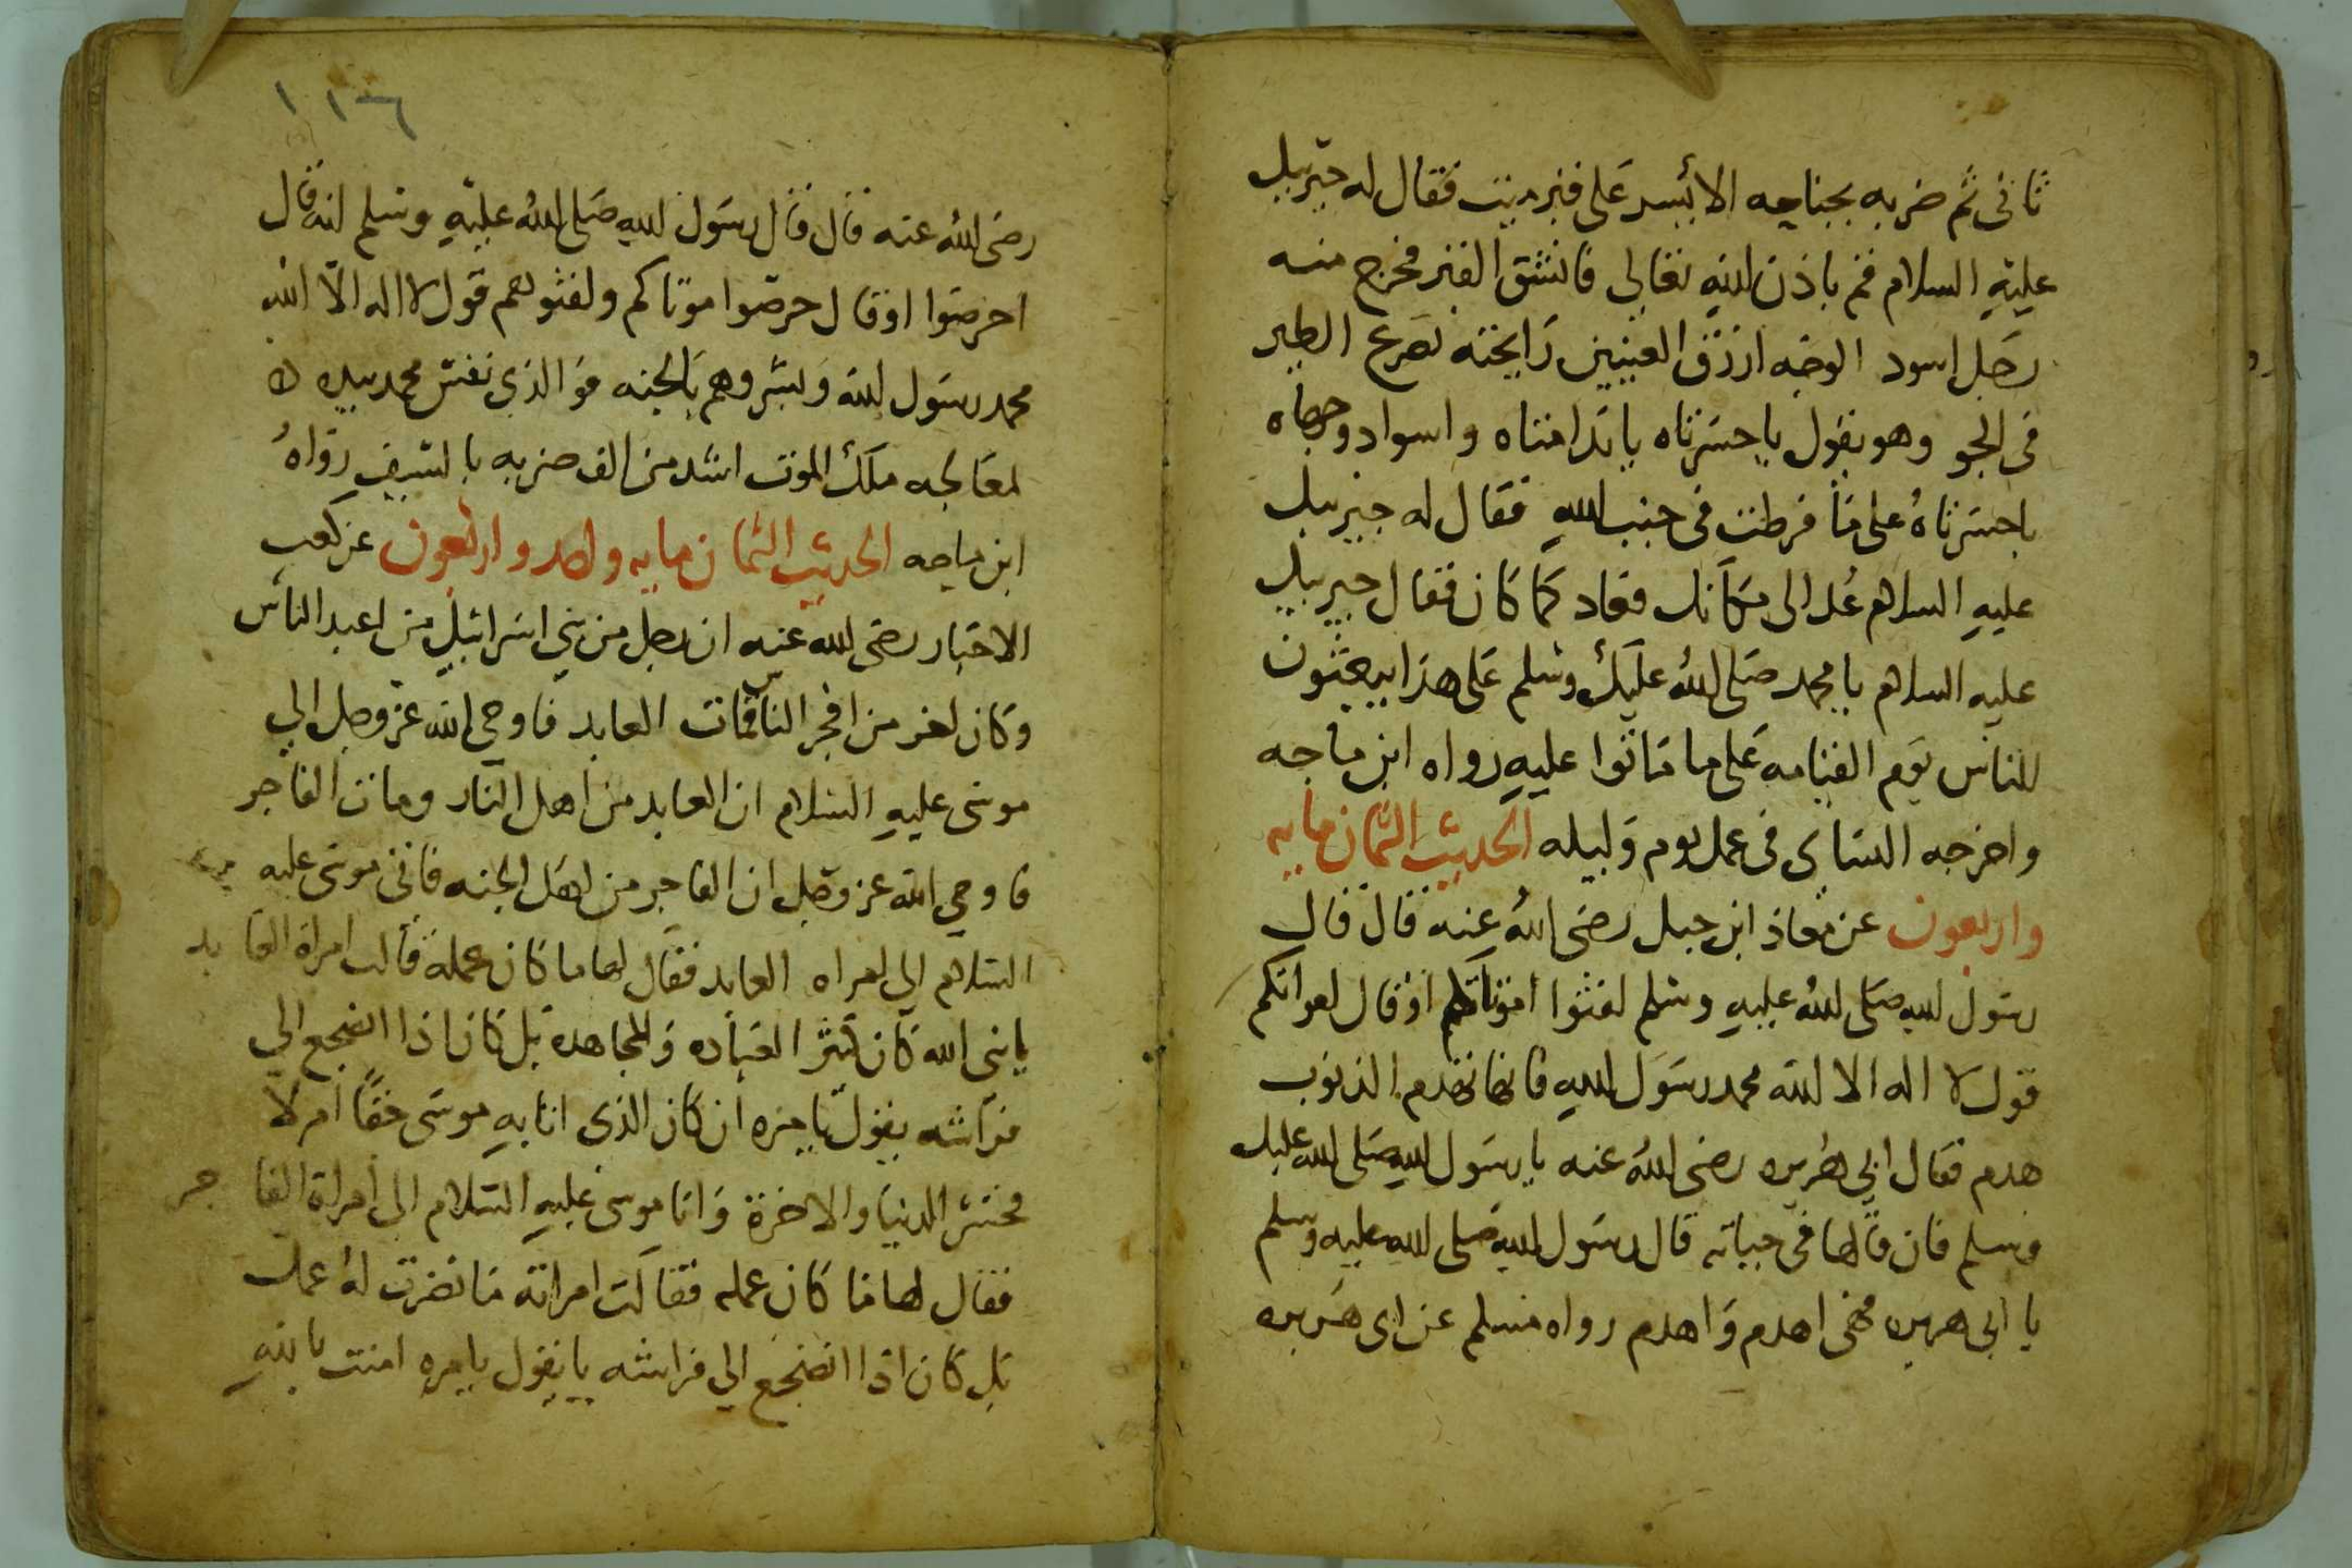 ثانى ثم ضربه بجناحه الايسر على قبر ميت فقال له جبريل
عليه السلام قم باذن الله تعالى فانشق القبر فخرج منه
رجل اسود الوجه ازرق العينين رايحته تصرع الطير
فى الجو وهو يقول يا حسرتاه يا ندامتاه واسواد وجهاه
يا حسرتاه على ما فرطت فى جنب الله فقال له جبريل
عليه السلام عد الى مكانك فعاد كما كان فقال جبريل
عليه السلام يا محمد صلى الله عليك وسلم على هذا يبعثون
للناس يوم القيامه على ما ماتوا عليه رواه ابن ماجه
واخرجه النساى فى عمل يوم وليله الحديث الثمان مايه
واربعون عن معاذ ابن جبل رضى الله عنه قال قال
رسول الله صلى الله عليه وسلم لقنوا امواتكم او قال
قول لا اله الا الله محمد رسول الله فانها تهدم الذنوب
هدم فقال ابي هريره رضى الله عنه يا رسول الله صلى الله عليك
وسلم فان قالها فى حياته قال رسول الله صلى الله عليه وسلم
يا ابى هريره فهى اهدم واهدم رواه مسلم عن ابى هريره
١١٦
رضى الله عنه قال قال رسول الله صلى الله عليه وسلم انه قال
احرصوا او قال حرصوا موتاكم ولقنوهم قول لا اله الا الله
محمد رسول الله وبشروهم بالجنه فو الذى نفس محمد بيده لا
لمعالجه ملك الموت اشد من الف ضربه بالسيف رواه
ابن ماجه الحديث الثمان مايه واحد واربعون عن كعب
الاحبار رضى الله عنه ان رجل من بني اسرائيل من اعبد الناس
وكان اخر من افجر الناس فمات العابد فاوحي الله عز وجل الي
موسى عليه السلام ان العابد من اهل النار ومات الفاجر
فاوحي الله عز وجل ان الفاجر من اهل الجنه فاتى موسى عليه
السلام الي امراه العابد فقال لها ما كان عمله قالت امراة العابد
يا نبى الله كان كثر العباده والمجاهدة بل كان اذا اضجع الي
فراشه يقول يا مره ان كان الذى اتا به موسى حقا ام لا
فخسر الدنيا والاخرة واتا موسى عليه السلام الى امراة الفاجر
فقال لها ما كان عمله فقالت امراته ما نضرت له عمل
بل كان اذا انضجع الي فراشه يا يقول يا مره امنت بالله